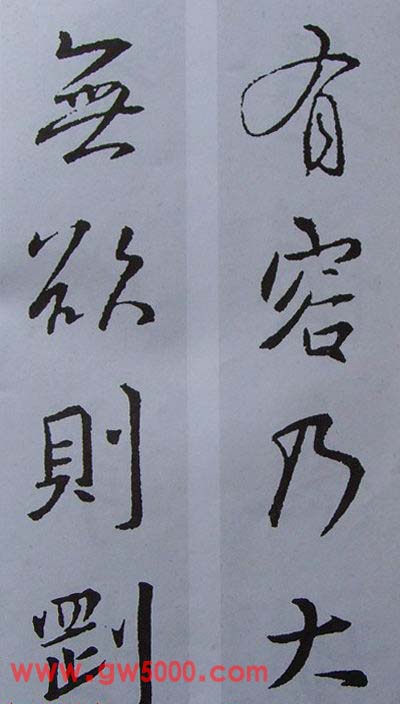 有容乃大
無欲則剛
www.gw5000.com